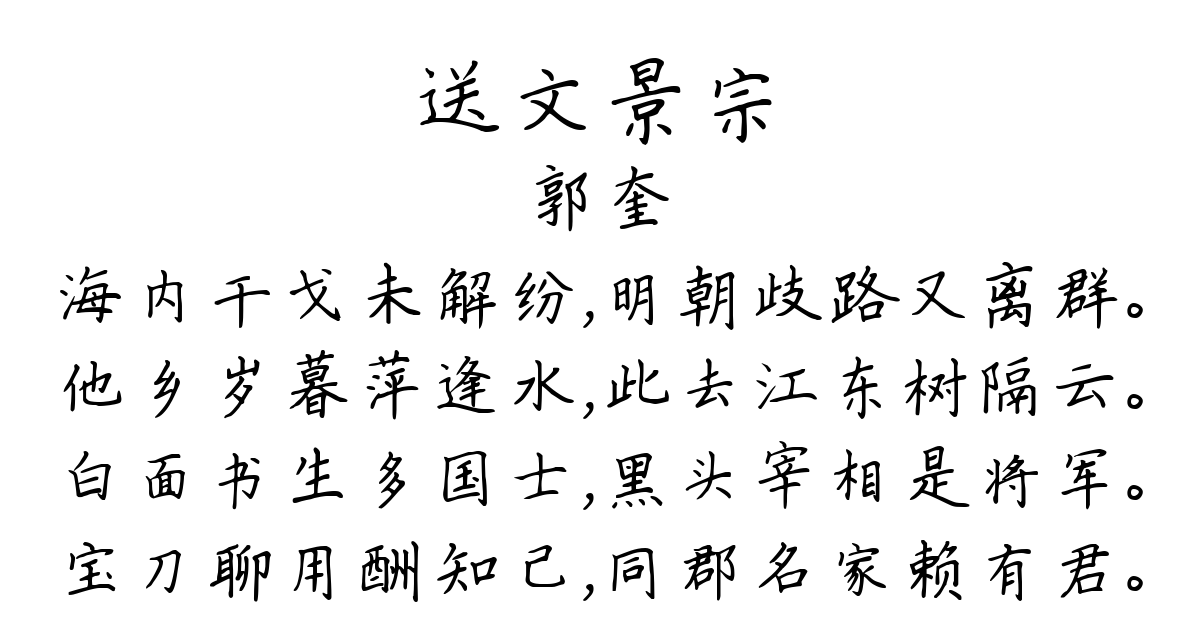 送文景宗
郭奎
海内干戈未解纷,明朝歧路又离群。
他乡岁暮萍逢水,此去江东树隔云。
白面书生多国士,黑头宰相是将军。
宝刀聊用酬知己,同郡名家赖有君。